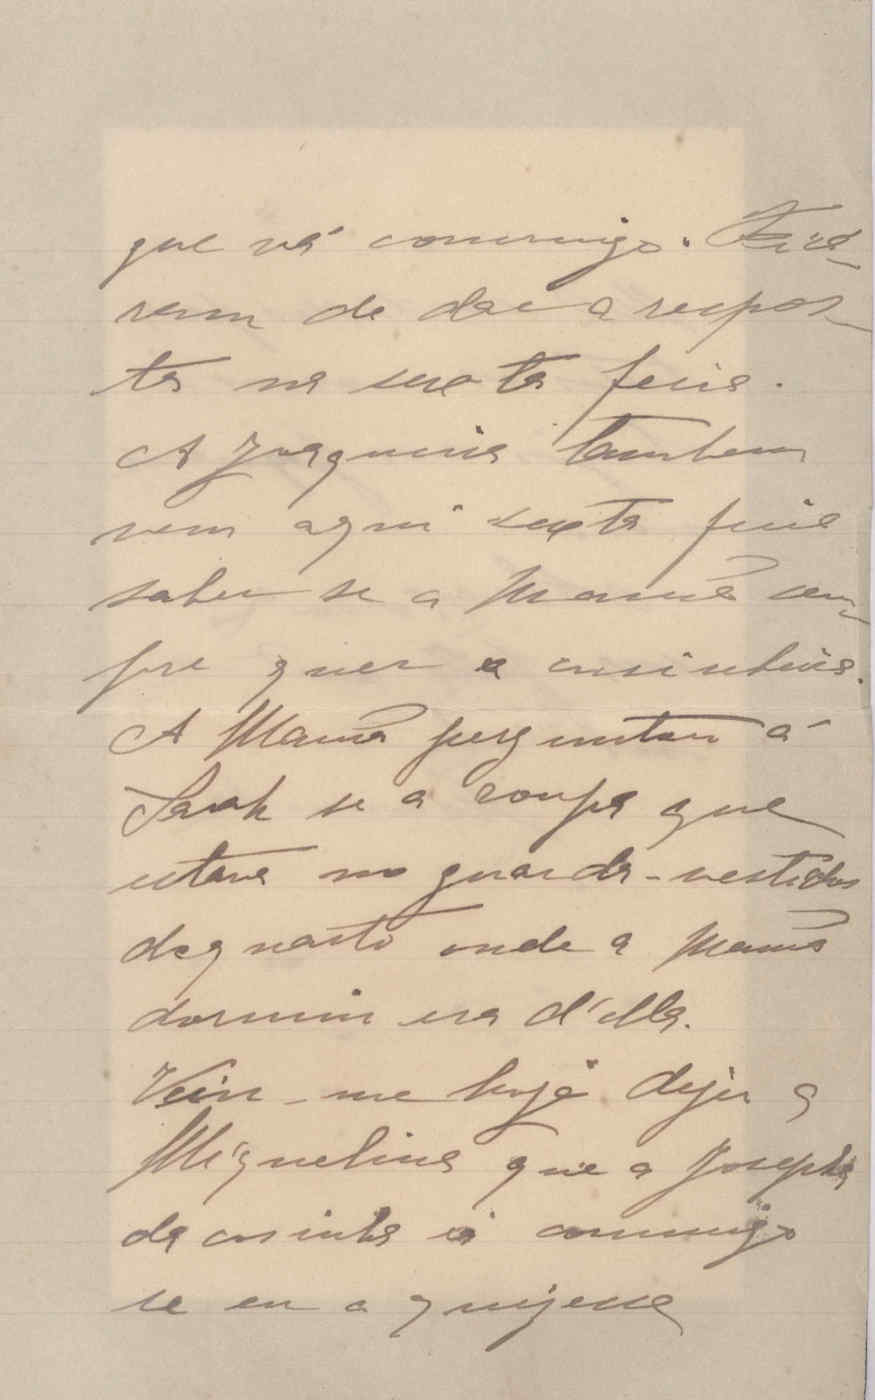 que vá commigo. Fica-
ram de dar a respos-
ta na sexta feira.
A Joaquina tambem
vem aqui sexta feira
saber se a Mamã sem-
pre quer a cosinheira.
A Mamã perguntou á
Sarah se a roupa que
estava no guarda-vestidos
do quarto onde a Mamã
dormiu era d'ella.
Veiu-me hoje dizer a
Miquelina que a Josepha
da cosinha ia commigo
se eu a quizesse